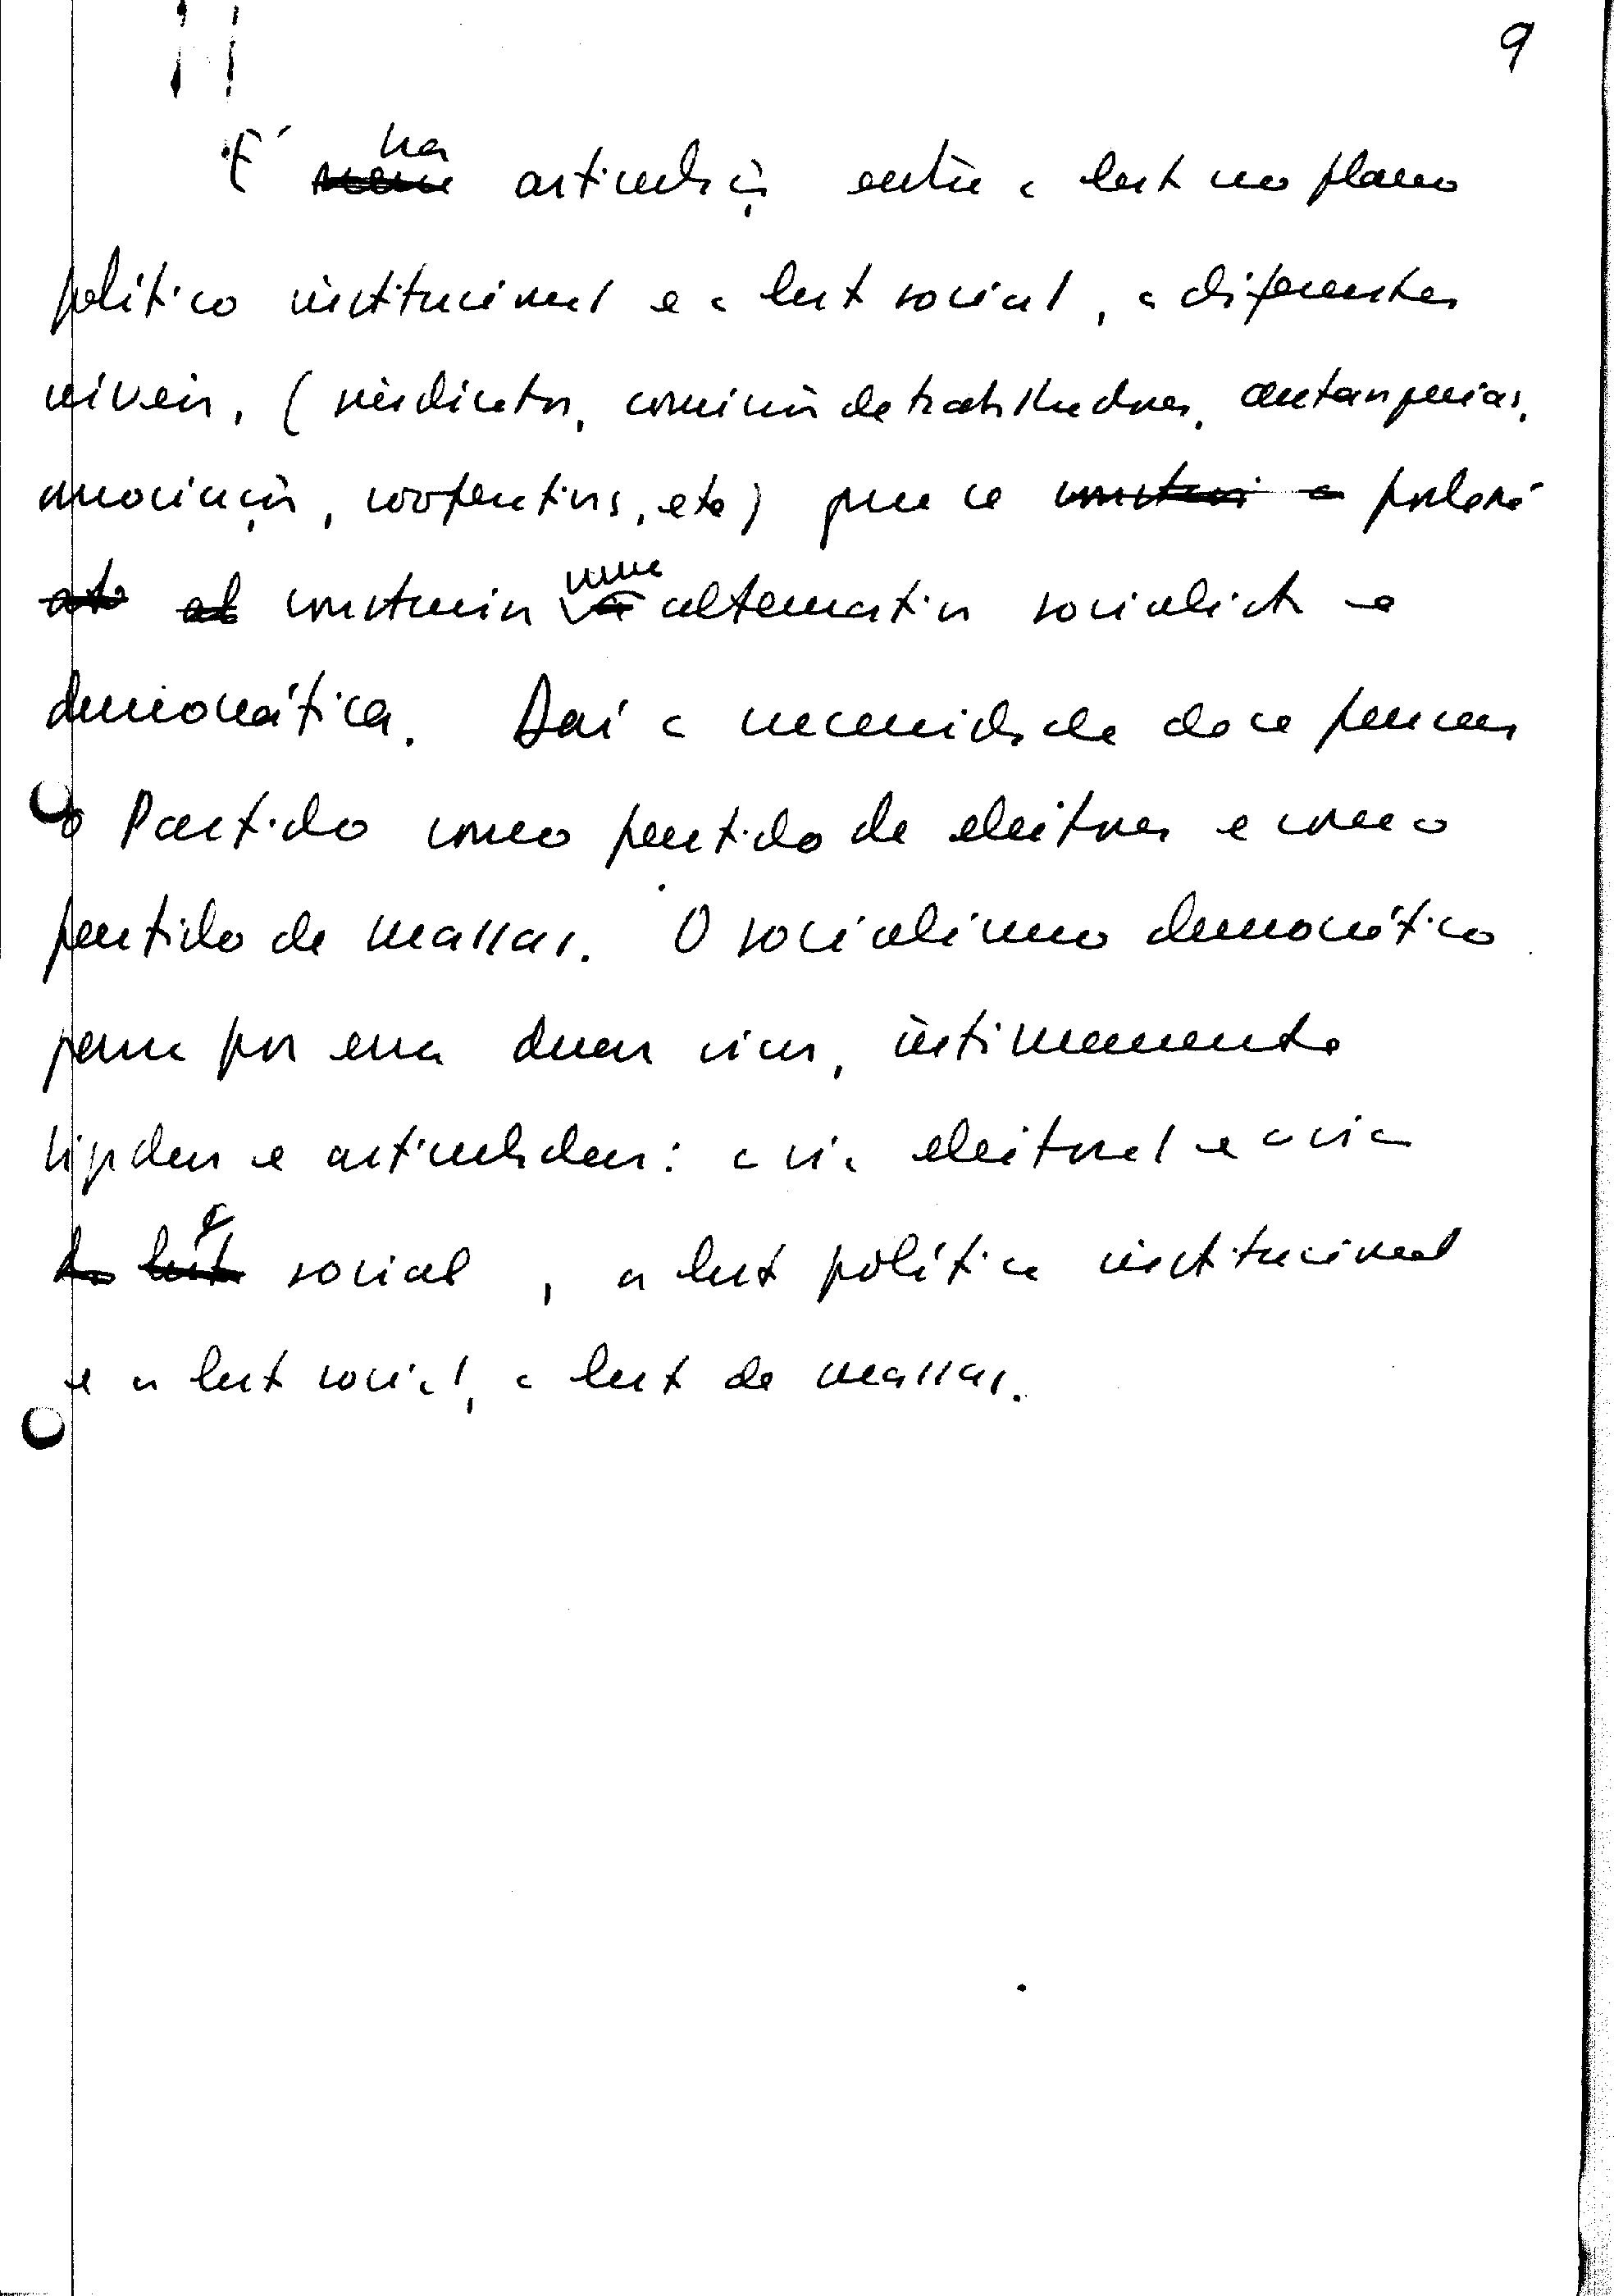 9
É na articulação entre a luta no plano
político institucional e a luta social, a diferentes
níveis, (sindicatos, comissões de trabalhadores, autarquias,
associações, cooperativas, etc) que se poderá
construir uma alternativa socialista e
democrática. Daí a necessidade de se pensar
o Partido como partido de eleitores e como
partido de massas. O socialismo democrático
passa por essas duas vias, intimamente
ligadas e articuladas: a via eleitoral e a via
social, a luta política institucional
e a luta social, a luta de massas.